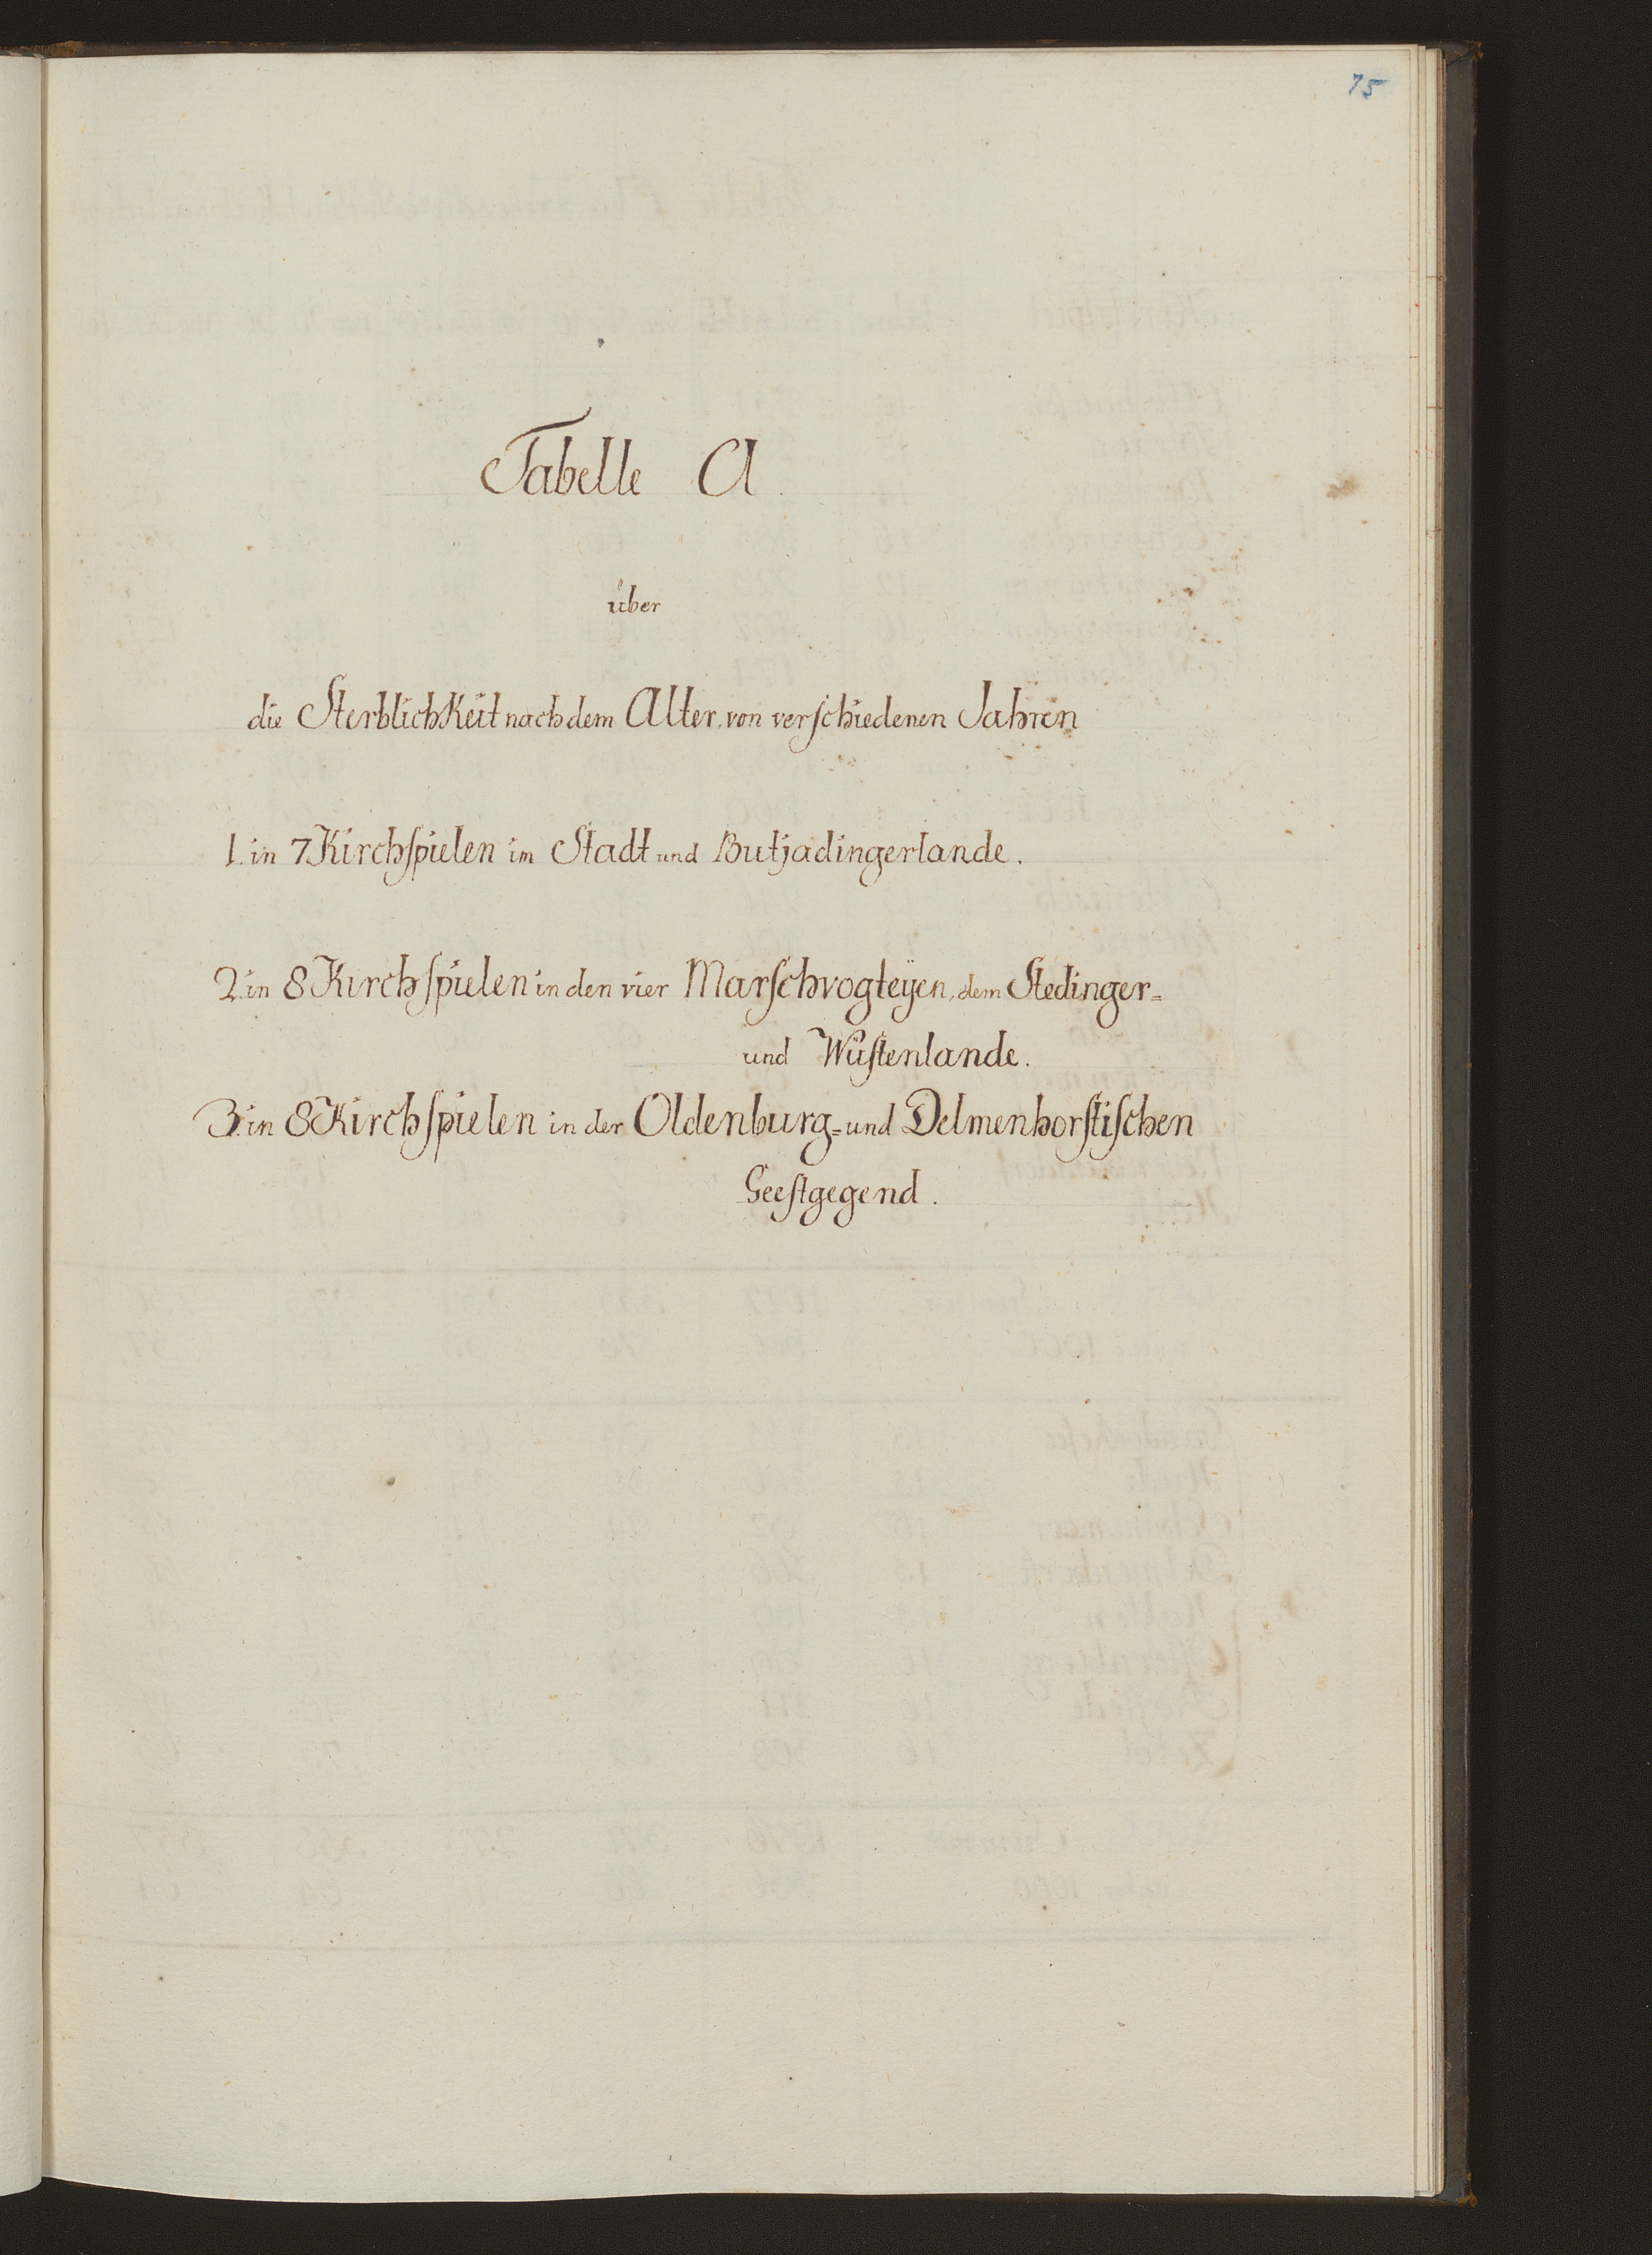 75
Tabelle A.
über
die Sterblichkeit nach dem Alter, von verschiedenen Jahren
1. in 7 Kirchspielen im Stadt und Butjadingerlande.
2. in 8 Kirchspielen in den vier Marschvogteÿen, dem Stedinger=
und Wüstenlande.
3. in 8 Kirchspielen in der Oldenburg= und Delmenhorstischen
Geestgegend.